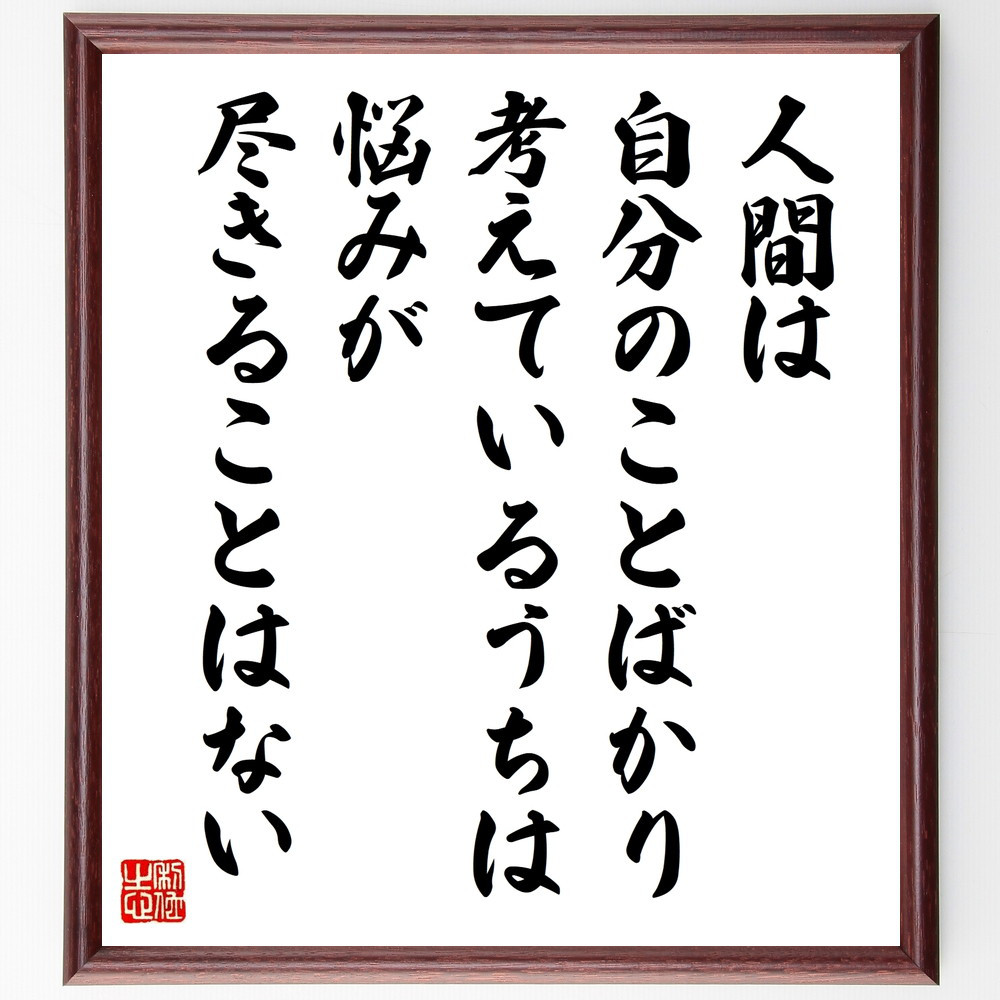 人間は
自分のことばかり
考えているうちは
悩みが
尽きることはない